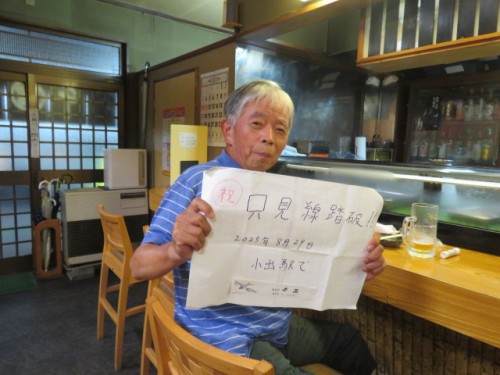 祝 只見線踏破!!
2025年8月29日
小出駅で